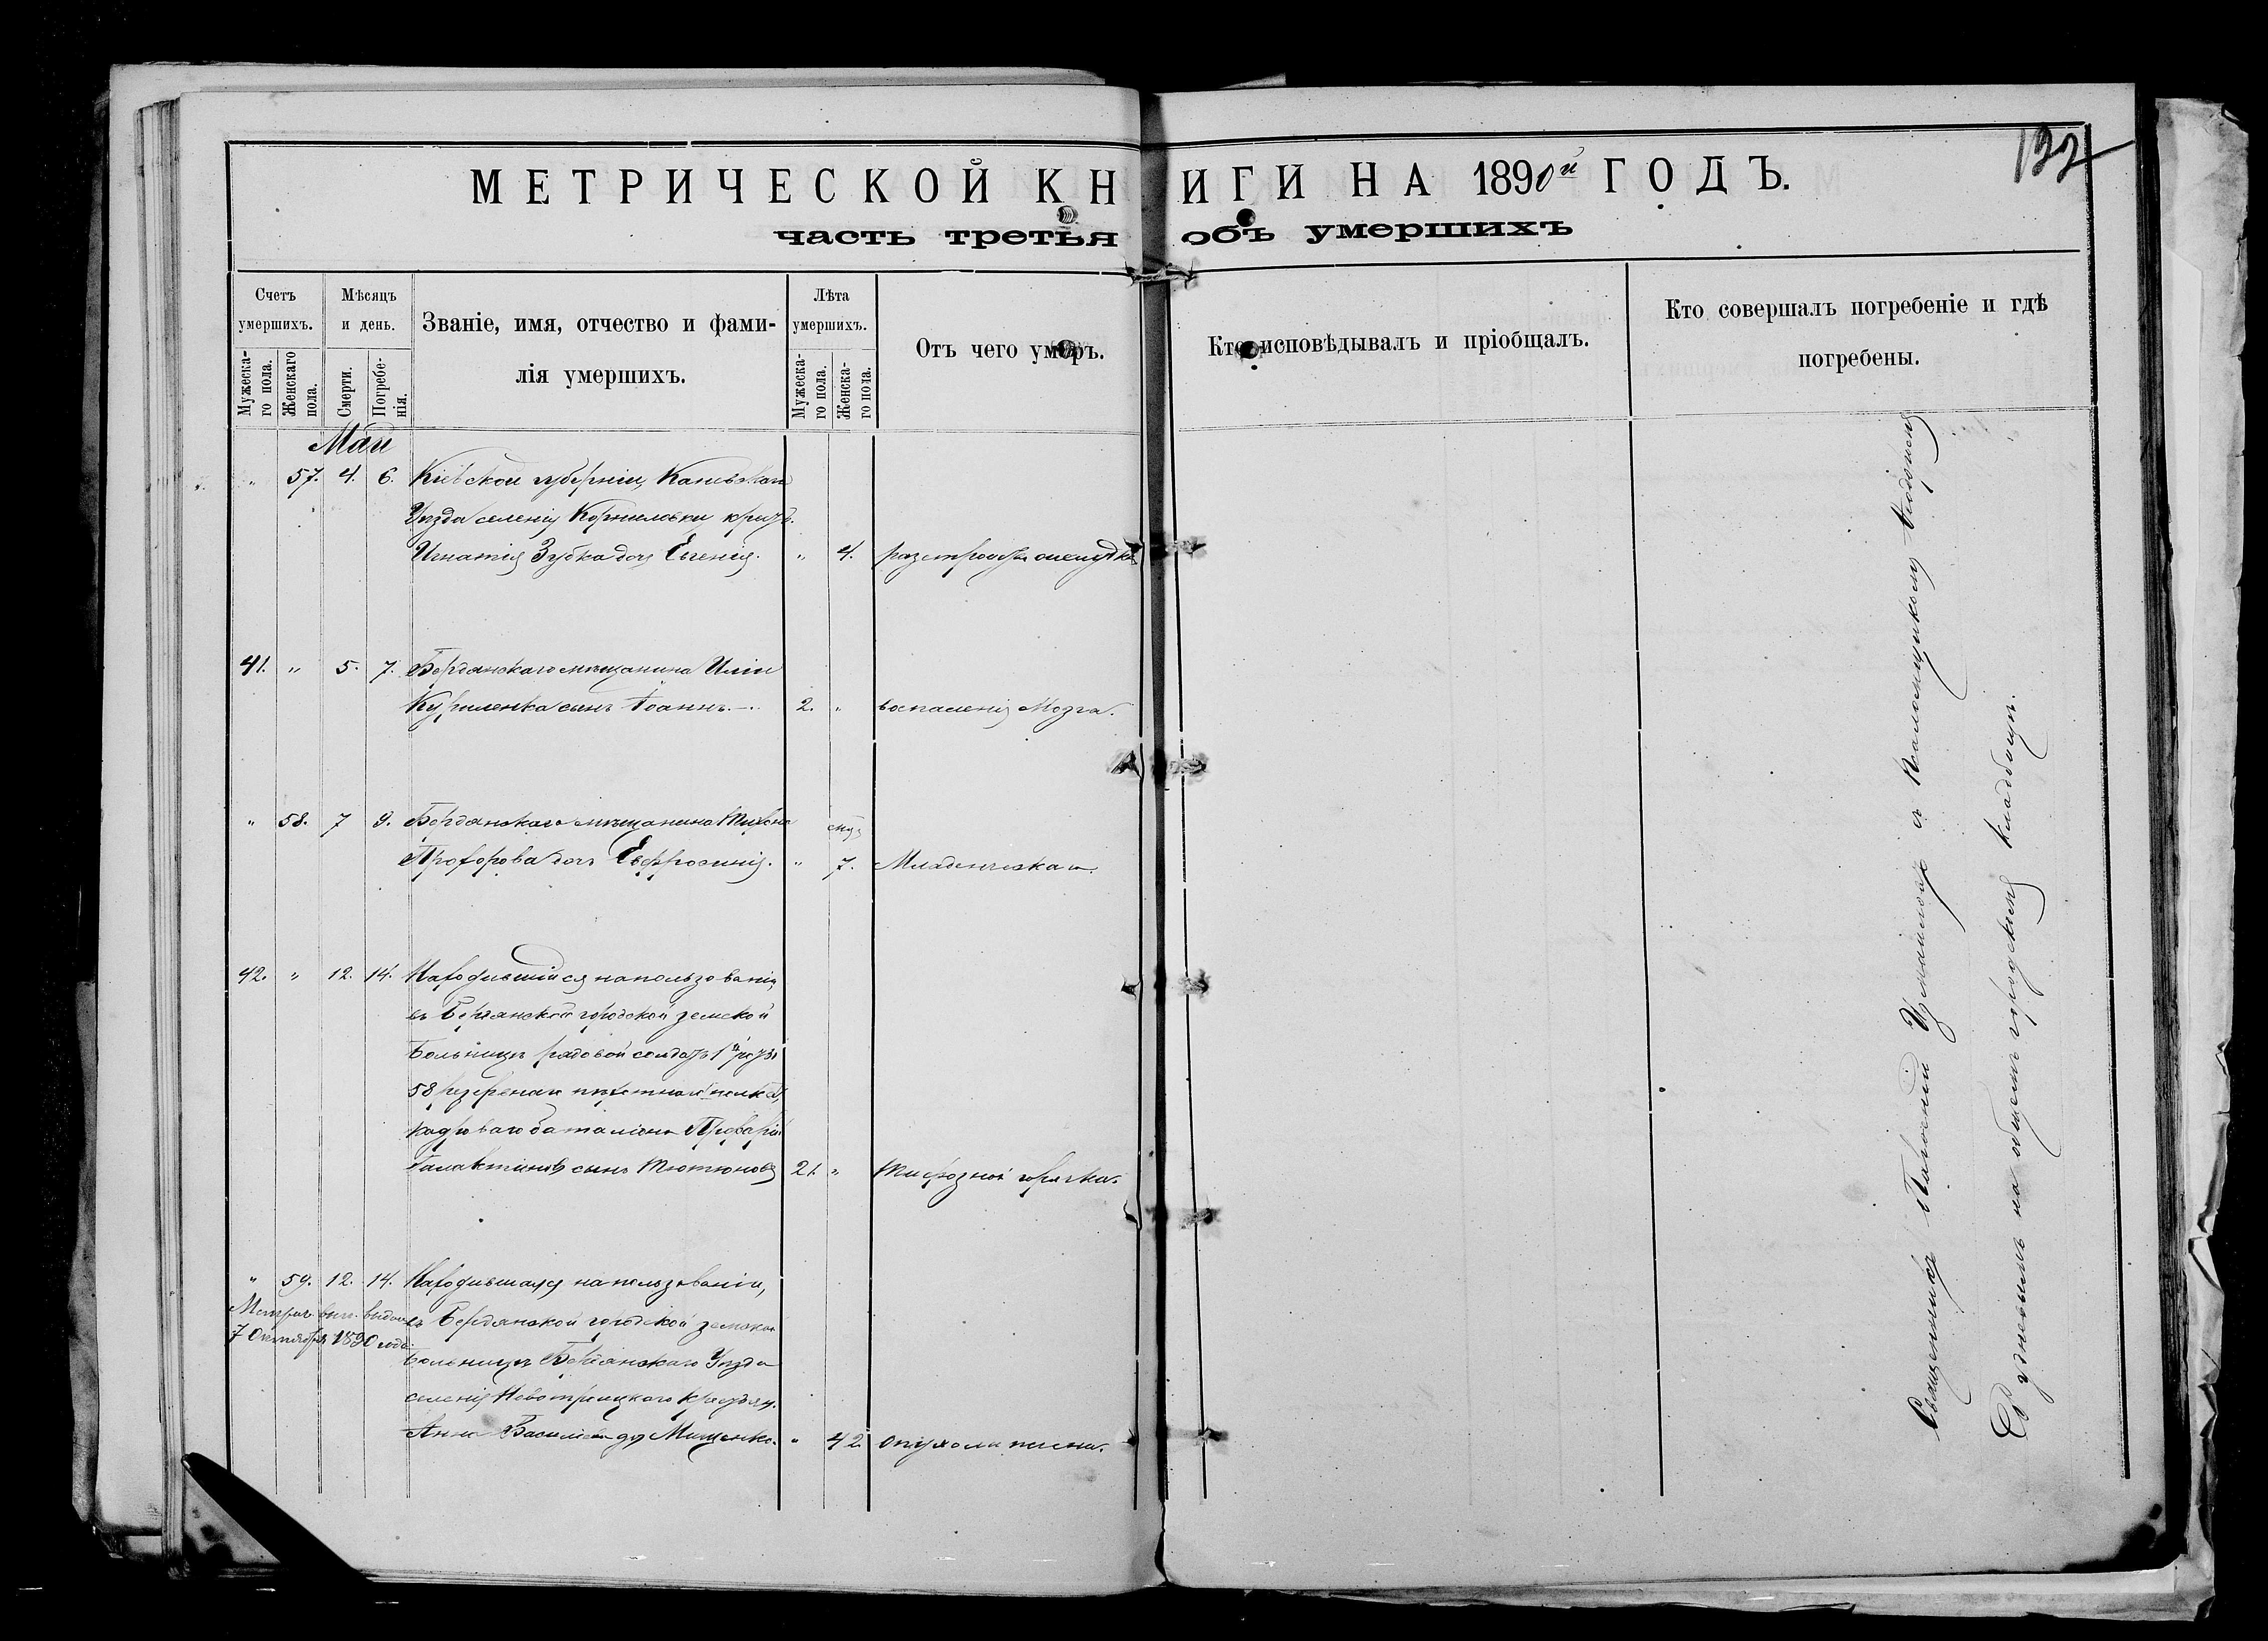 МЕТРИЧЕСКОЙ КНИГИ НА 1890й ГОДЪ.
часть третья объ умершихъ
Счетъ умершихъ.
Мужеска-го пола.
Женскаго пола.
Мѣсяцъ и день.
Смерти.
Погребе-нія.
Званіе, имя, отчество и фами-
лія умершихъ.
Лѣта умершихъ.
Мужеска-го пола.
Женска-го пола.
Отъ чего умеръ.
Кто исповѣдывалъ и пріобщалъ.
Кто совершалъ погребеніе и гдѣ
погребены.
Май
" 57. 4. 6. Кіевской губерніи, Каневскаго
Уѣзда селенія Корниловки
Игнатія Зубка дочь Евгенія. " 4.
41. " 5. 7. Бердянскаго мѣщанина Иліи
Куриленка сынъ Іоаннъ. 2. " воспаленія Мозга.
" 58. 7 9. Бердянскаго мѣщанина Тихона
Прохорова дочь Евфросинія. " 7. Младенческая.
42. " 12. 14. Находившійся на пользованіи
въ Бердянской городской земской
Больницѣ рядовой солдатъ
58
кадроваго баталіона
сынъ Тютюновъ 21. " Тифозной горячки.
" 59. 12. 14. Находившаяся на пользованіи,
въ Бердянской городской земской
Больницѣ Бердянскаго Уѣзда
селенія Новотроицкаго
Анна Мищенко. " 42 опухоли
7 Октября 1890 года
Священникъ съ Псаломщикомъ
на общемъ городскомъ кладбищѣ.